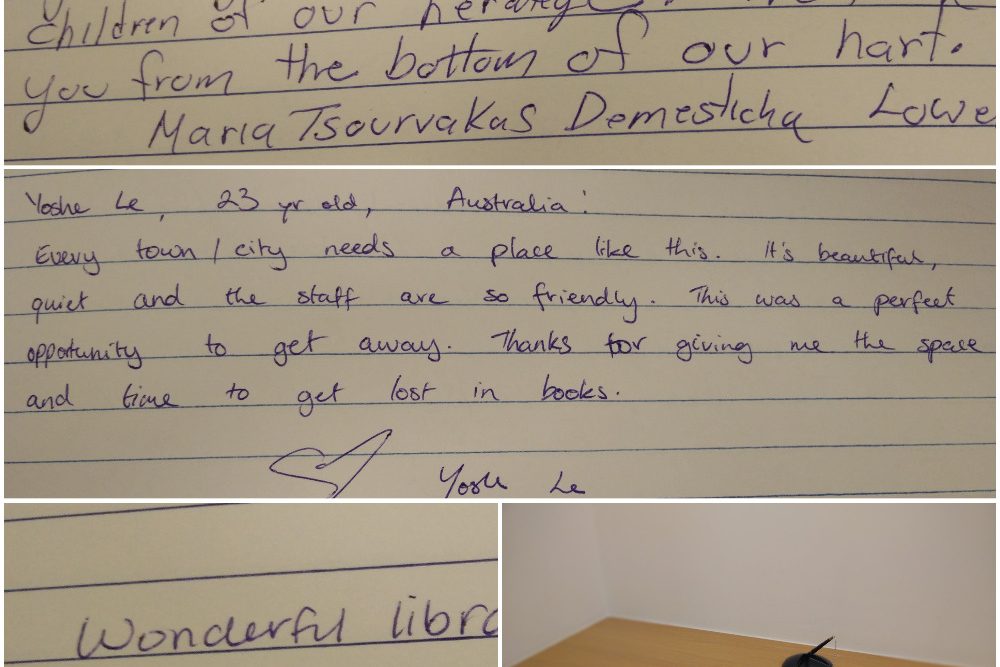 children of our
you from the bottom of our hart.
Maria Tsourvakas Demesticha Lowe
Yoshe Le, 23 yr old, Australia:
Every town / city needs a place like this. It's beautiful,
quiet and the staff are so friendly. This was a perfect
opportunity to get away. Thanks for giving me the space
and time to get lost in books.
Yoshe Le
Wonderful libra